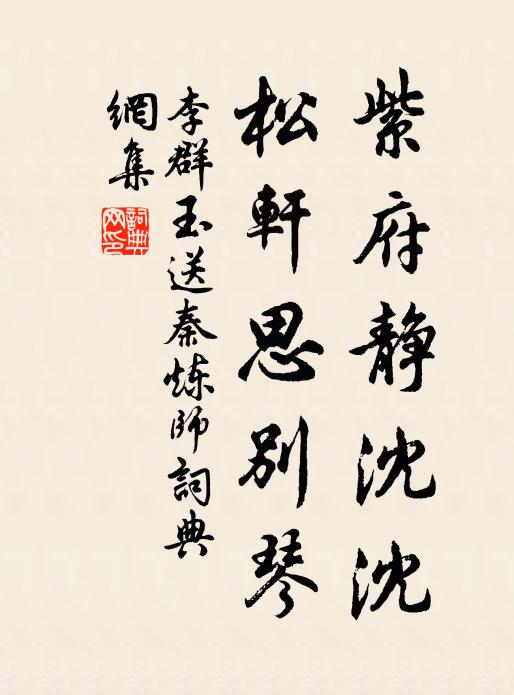 紫府静沈沈
松軒思别琴
李群玉送秦炼师詞典
網集
詞典网印